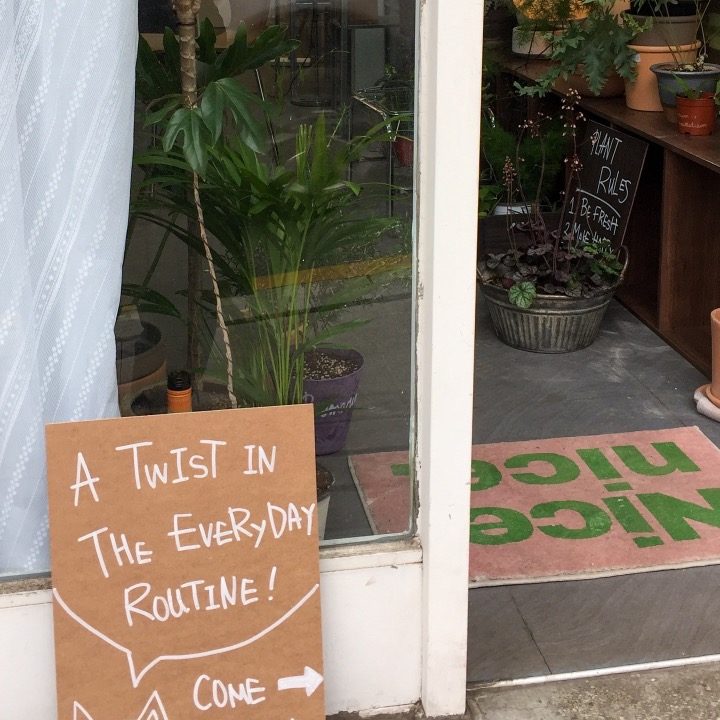 A TWIST IN
THE EVERYDAY
ROUTINE!
COME
PLANT
RULES
1 BE FRESH
2 MAKE
nice
nice
Nice